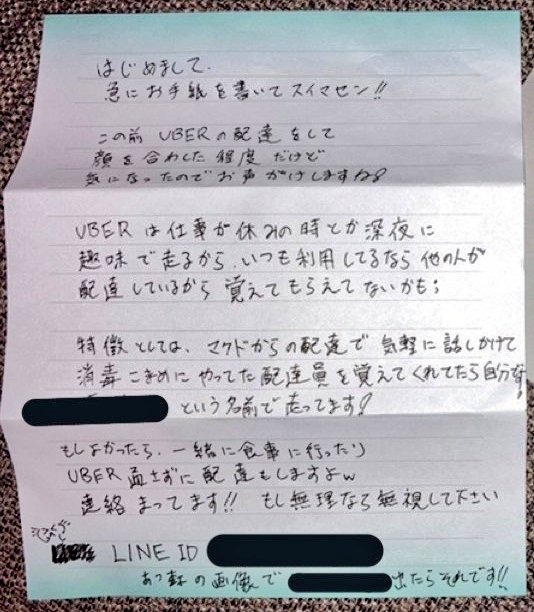 はじめまして、
急にお手紙を書いてスイマセン!!
この前 UBERの配達をして
顔を合わした程度だけど
気になったのでお声がけしますね!
UBERは仕事が休みの時とか深夜に
趣味で走るから、いつも利用してるなら他の人が
配達しているから覚えてもらえてないかも;
特徴としては、マクドからの配達で気軽に話しかけて
消毒こまめにやってた配達員を覚えてくれてたら自分です
という名前で走ってます!
もしよかったら、一緒に食事に行ったり
UBER 通さずに配達もしますよw
連絡まってます!! もし無理なら無視して下さい
LINE ID
の画像で 出たらそれです!!